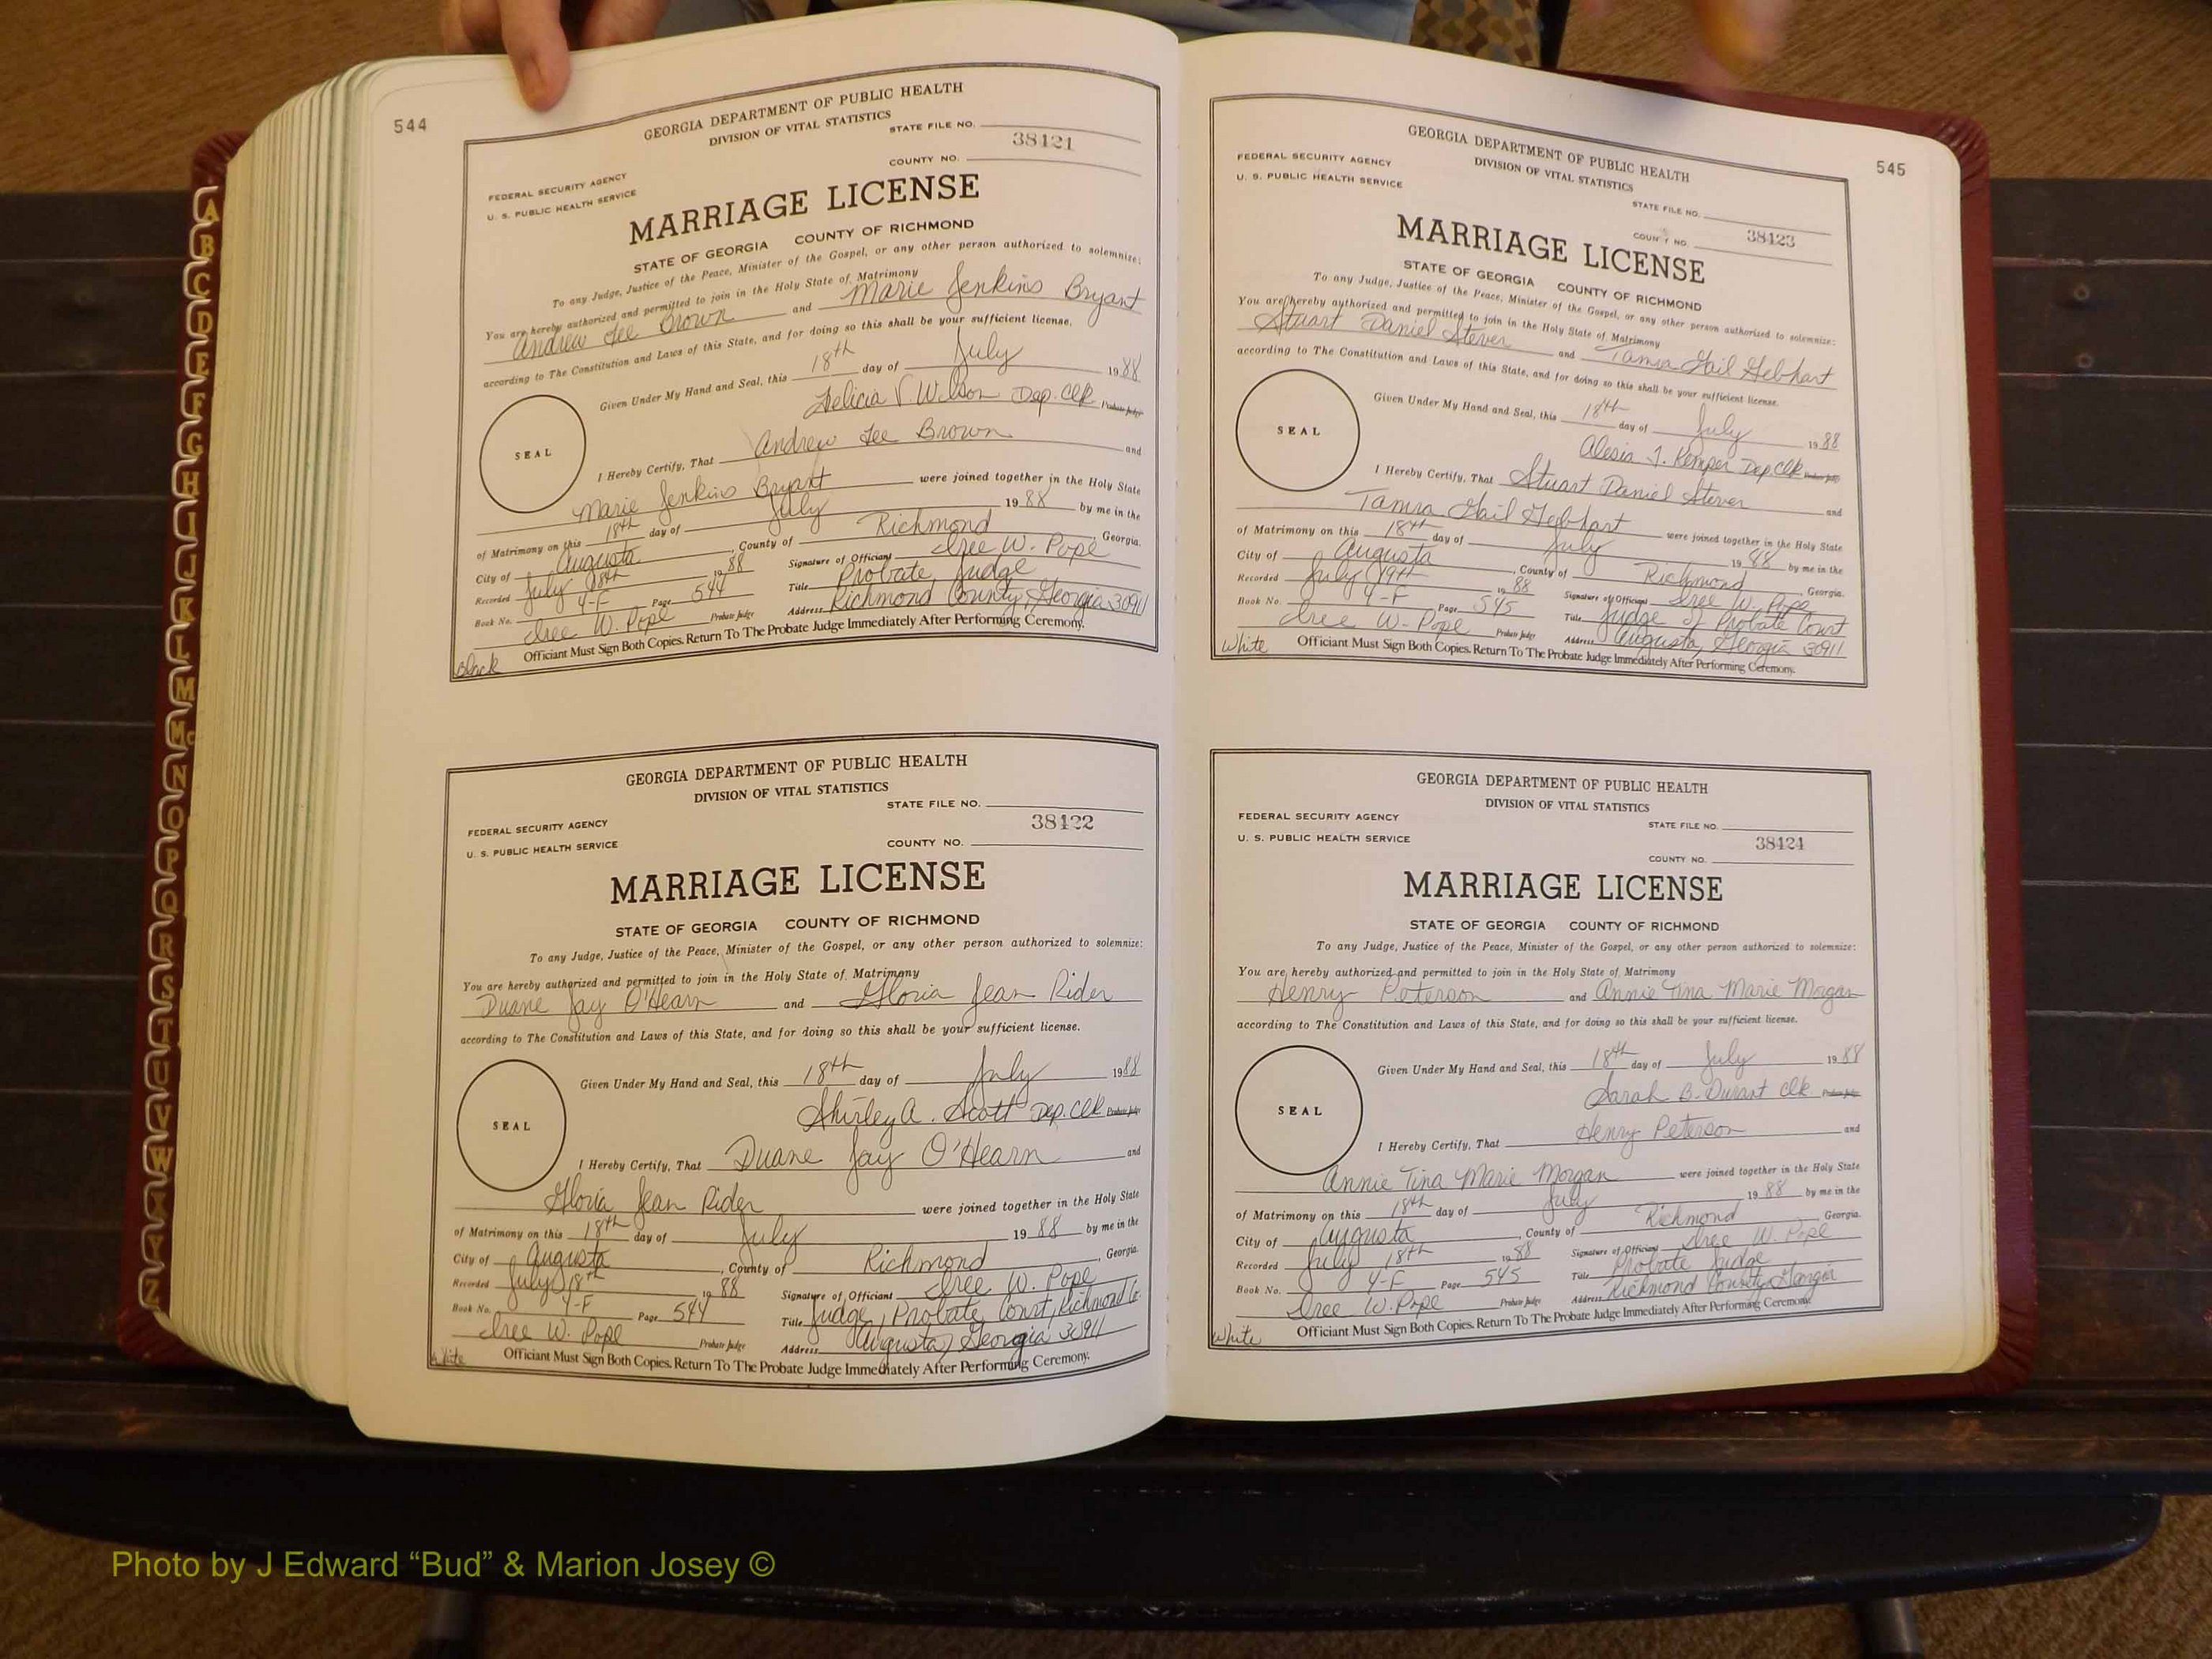 544
GEORGIA DEPARTMENT OF PUBLIC HEALTH
DIVISION OF VITAL STATISTICS
STATE FILE NO.
38421
COUNTY NO.
FEDERAL SECURITY AGENCY
U. S. PUBLIC HEALTH SERVICE
MARRIAGE LICENSE
STATE OF GEORGIA COUNTY OF RICHMOND
To any Judge, Justice of the Peace, Minister of the Gospel, or any other person authorized to solemnize:
You are hereby authorized and permitted to join in the Holy State of Matrimony
Andrew Lee Brown and Marie Jenkins Bryant
according to The Constitution and Laws of this State, and for doing so this shall be your sufficient license.
Given Under My Hand and Seal, this 18th day of July 1988
Felicia V Wilson Dep. Clk Probate Judge
SEAL
I Hereby Certify, That Andrew Lee Brown and
Marie Jenkins Bryant were joined together in the Holy State
of Matrimony on this 18th day of July 1988 by me in the
City of Augusta, County of Richmond, Georgia.
Recorded July 18th 1988 Signature of Officiant Isee W. Pope
Book No. 4-F Page 544 Title Probate Judge
Isee W. Pope Probate Judge Address Richmond County, Georgia 30911
Officiant Must Sign Both Copies. Return To The Probate Judge Immediately After Performing Ceremony.
Black
GEORGIA DEPARTMENT OF PUBLIC HEALTH
DIVISION OF VITAL STATISTICS
STATE FILE NO.
38422
FEDERAL SECURITY AGENCY
U. S. PUBLIC HEALTH SERVICE
COUNTY NO.
MARRIAGE LICENSE
STATE OF GEORGIA COUNTY OF RICHMOND
To any Judge, Justice of the Peace, Minister of the Gospel, or any other person authorized to solemnize:
You are hereby authorized and permitted to join in the Holy State of Matrimony
Duane Jay O'Hearn and Gloria Jean Rider
according to The Constitution and Laws of this State, and for doing so this shall be your sufficient license.
Given Under My Hand and Seal, this 18th day of July 1988
Shirley A. Scott Dep. Clk Probate Judge
SEAL
I Hereby Certify, That Duane Jay O'Hearn and
Gloria Jean Rider were joined together in the Holy State
of Matrimony on this 18th day of July 1988 by me in the
City of Augusta, County of Richmond, Georgia.
Recorded July 18th 1988 Signature of Officiant Isee W. Pope
Book No. 4-F Page 544 Title Judge, Probate Court, Richmond Co.
Isee W. Pope Probate Judge Address Augusta, Georgia 30911
Officiant Must Sign Both Copies. Return To The Probate Judge Immediately After Performing Ceremony.
White
545
GEORGIA DEPARTMENT OF PUBLIC HEALTH
DIVISION OF VITAL STATISTICS
FEDERAL SECURITY AGENCY
U. S. PUBLIC HEALTH SERVICE
STATE FILE NO.
38423
COUNTY NO.
MARRIAGE LICENSE
STATE OF GEORGIA COUNTY OF RICHMOND
To any Judge, Justice of the Peace, Minister of the Gospel, or any other person authorized to solemnize:
You are hereby authorized and permitted to join in the Holy State of Matrimony
Stuart Daniel Stever and Tamra Gail Gebhart
according to The Constitution and Laws of this State, and for doing so this shall be your sufficient license.
Given Under My Hand and Seal, this 18th day of July 1988
Alesia J. Kemper Dep Clk Probate Judge
SEAL
I Hereby Certify, That Stuart Daniel Stever and
Tamra Gail Gebhart were joined together in the Holy State
of Matrimony on this 18th day of July 1988 by me in the
City of Augusta, County of Richmond, Georgia.
Recorded July 19th 1988 Signature of Officiant Isee W. Pope
Book No. 4-F Page 545 Title Judge of Probate Court
Isee W. Pope Probate Judge Address Augusta, Georgia 30911
Officiant Must Sign Both Copies. Return To The Probate Judge Immediately After Performing Ceremony.
White
GEORGIA DEPARTMENT OF PUBLIC HEALTH
DIVISION OF VITAL STATISTICS
FEDERAL SECURITY AGENCY
U. S. PUBLIC HEALTH SERVICE
STATE FILE NO.
38424
COUNTY NO.
MARRIAGE LICENSE
STATE OF GEORGIA COUNTY OF RICHMOND
To any Judge, Justice of the Peace, Minister of the Gospel, or any other person authorized to solemnize:
You are hereby authorized and permitted to join in the Holy State of Matrimony
Henry Peterson and Annie Tina Marie Morgan
according to The Constitution and Laws of this State, and for doing so this shall be your sufficient license.
Given Under My Hand and Seal, this 18th day of July 1988
Sarah B. Durant Clk Probate Judge
SEAL
I Hereby Certify, That Henry Peterson and
Annie Tina Marie Morgan were joined together in the Holy State
of Matrimony on this 18th day of July 1988 by me in the
City of Augusta, County of Richmond Georgia.
Recorded July 18th 1988 Signature of Officiant Isee W. Pope
Book No. 4-F Page 545 Title Probate Judge
Isee W. Pope Probate Judge Address Richmond County
Officiant Must Sign Both Copies. Return To The Probate Judge Immediately After Performing Ceremony.
White
A
B
C
D
E
F
G
H
I
J
K
L
M
Mc
N
O
P
Q
R
S
T
U
V
W
X
Y
Z
Photo by J Edward “Bud” & Marion Josey ©